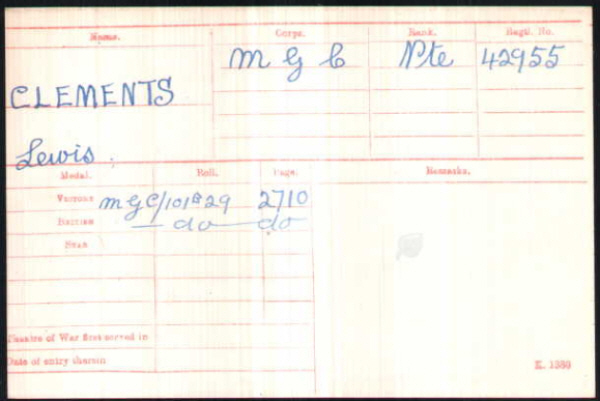 Name. Corps. Rank. Regtl. No.
M G C Pte 42955
CLEMENTS
Lewis.
Medal. Roll. Page. Remarks.
Victory MGC/101B29 2710
British — do — do
Star
Theatre of War first served in
Date of entry therein
K. 1380